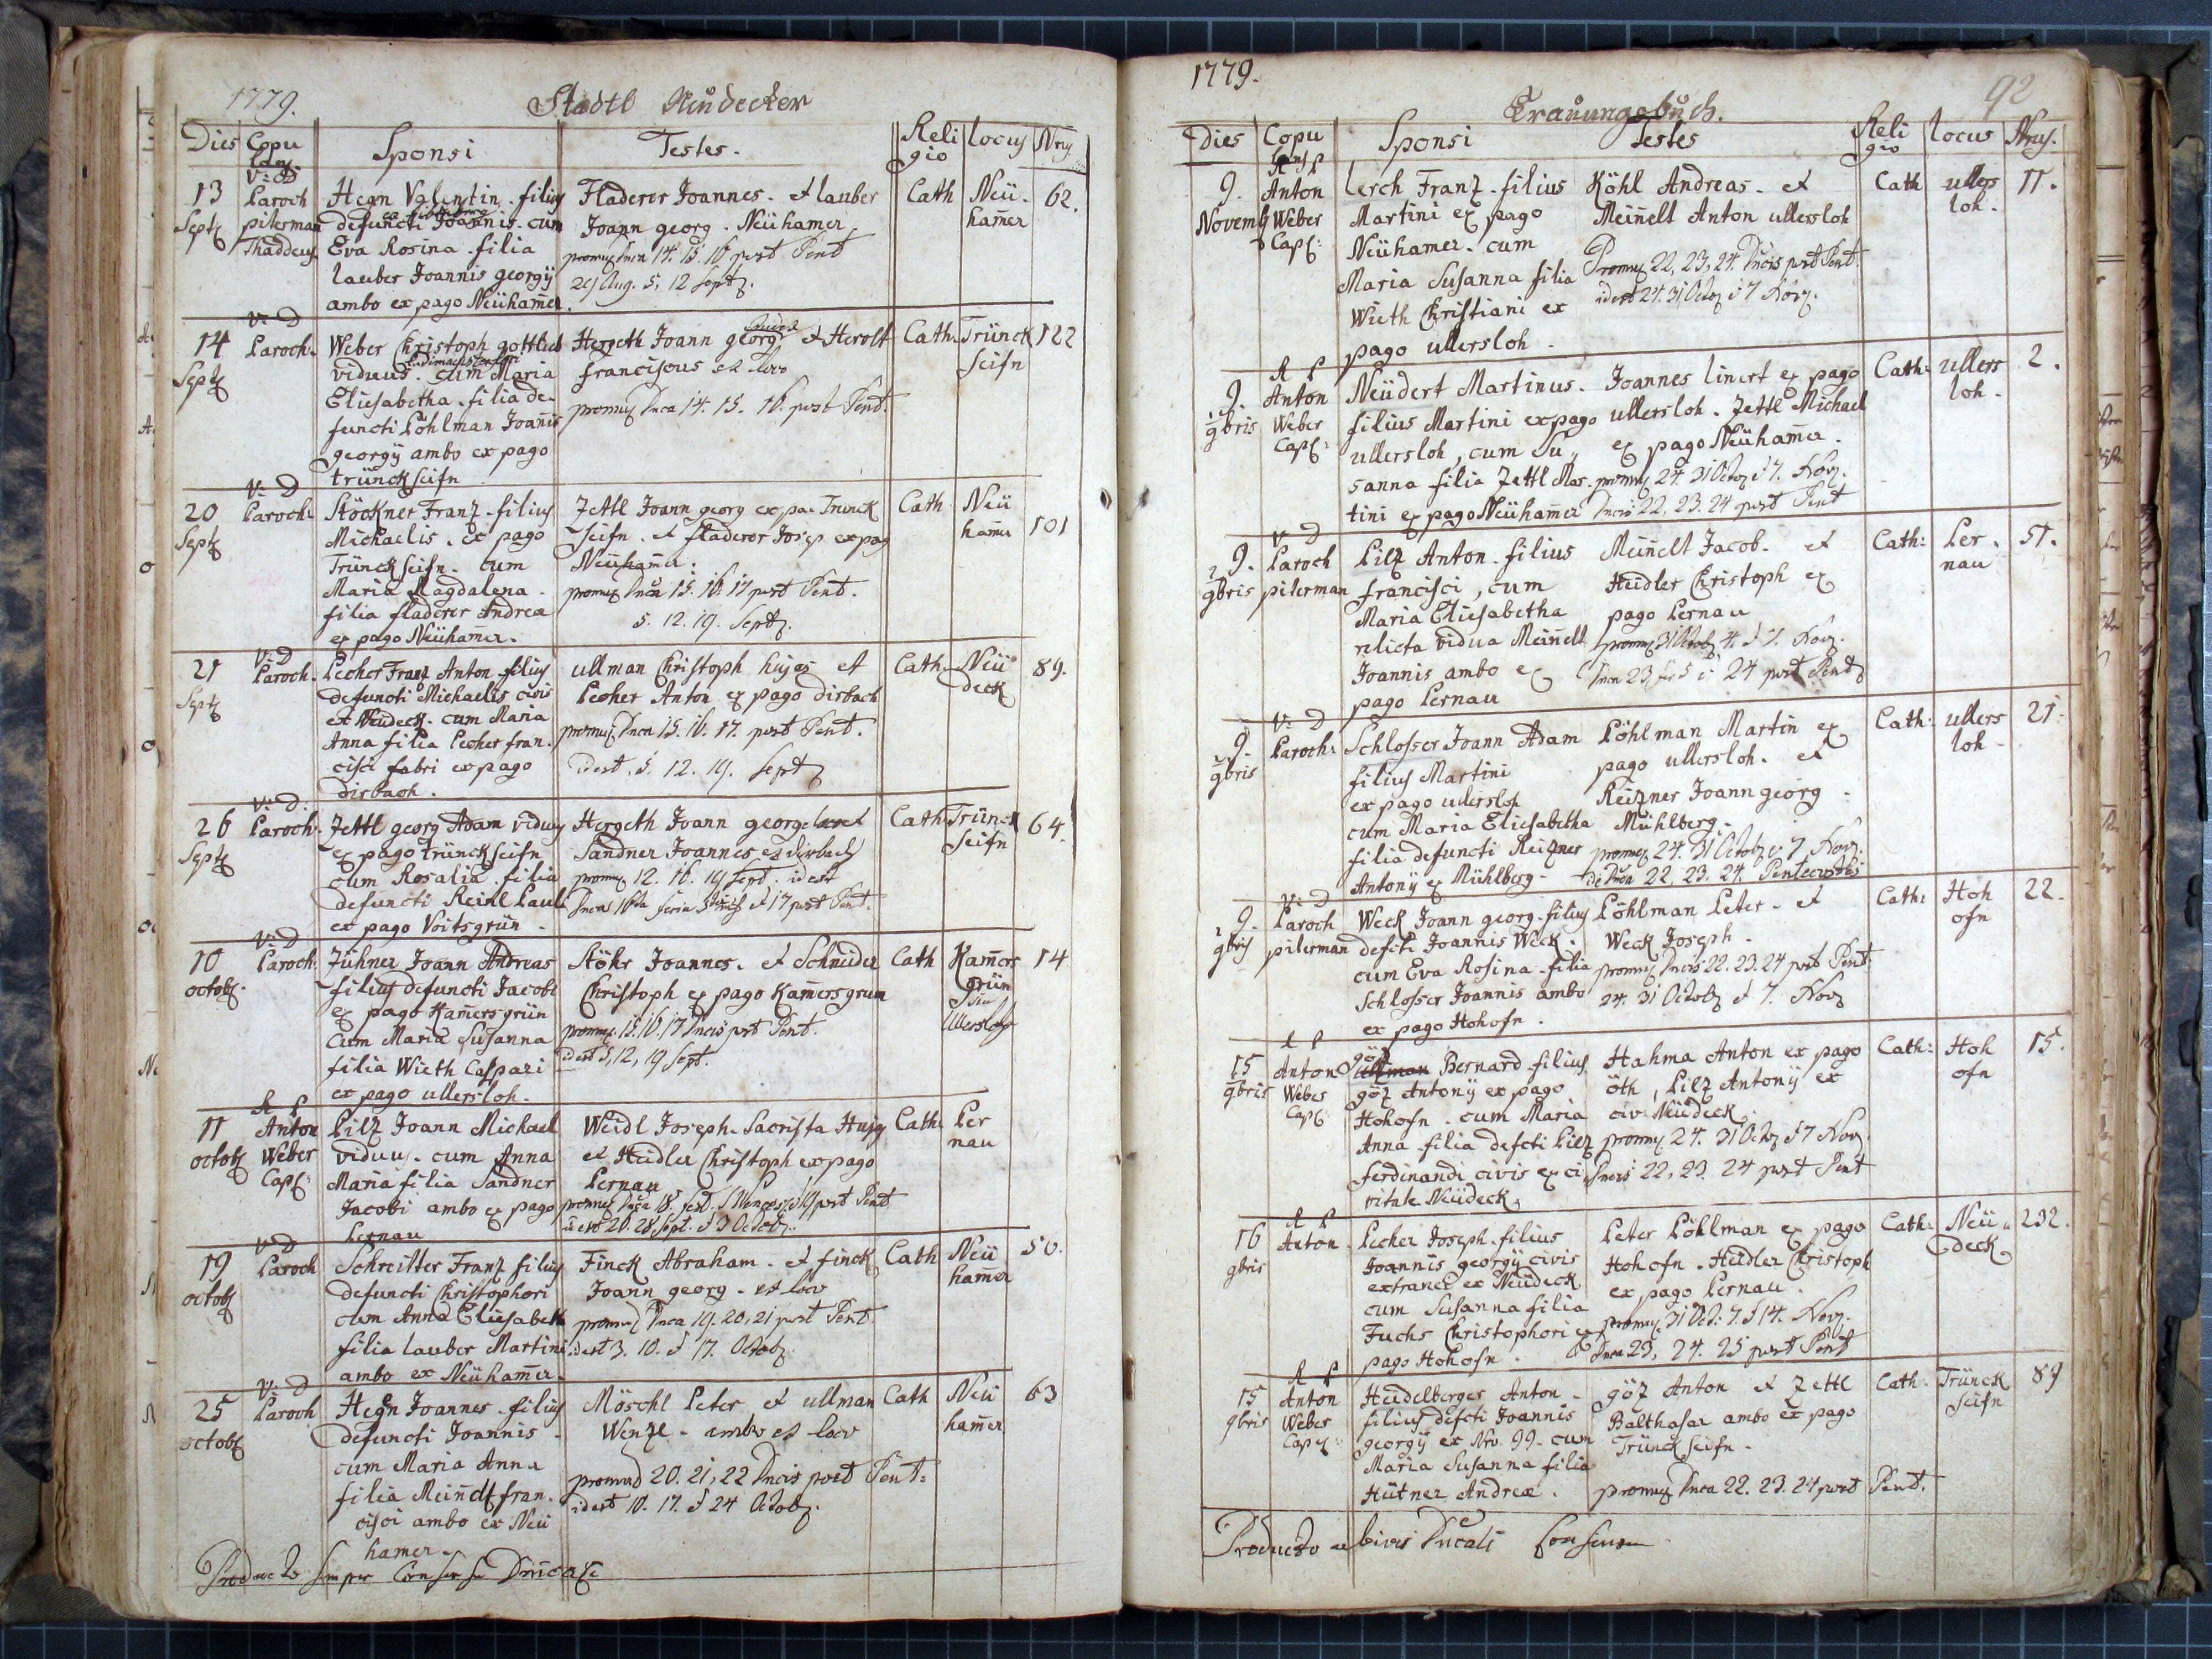 1779.
Stadtl Neudecker
Dies Copu Sponsi Testes. Reli Locus Nrus
lans gio
V: D
13 Paroch Hegn Valentin. filius Fladerer Joannes. et lauber Cath Neü- 62.
Sept pilerman defuncti Joannis. cum Joann georg. Neühamer hamer
Thaddeus Eva Rosina. filia promus Dnca 14. 15. 16 post Pent
lauber Joannis georgÿ 29 Aug. 5. 12 Sept.
ambo ex pago Neühamer.
V: D
14 Paroch: Weber Christoph gottlieb Hergeth Joann georg et Herolt Cath: Trünck 122
Sept viduus. cum Maria franciscus ex loco Seifn
Eliesabetha. filia de- promus Dnca 14. 15. 16. post Pent.
functi Pöhlman Joanis
georgÿ ambo ex pago
trünckseifn
V: D
20 Paroch: Stöckner Franz. filius Zettl Joann georg ex pa: Trunck Cath Neü 101
Sept Michaelis. ex pago Seifn. et fladerer Josep ex pag hamer
Trünckseifn. cum Neühama.
Maria Magdalena. promus Dnca 15. 16. 17 post Pent.
filia fladerer Andrea 5. 12. 19. Sept.
ex pago Neühamer.
V: D
21 Paroch. Pecher Franz Anton filius ullman Christoph hujas et Cath. Neü 89.
Sept defuncti Michaelis civis Pecher Anton ex pago dirbach deck
ex Neudeck. cum Maria promus Dnca 15. 16. 17. post Pent.
Anna filia Pecher fran- idest. 5. 12. 19. Sept
cisci fabri ex pago
dirbach.
V: D:
26 Paroch. Zettl georg Adam viduus Hergeth Joann george Cath Trünck 64.
Sept ex pago trünckseifn Sandner Joannes ex dirbach Seifn
cum Rosalia. filia promus 12. 16. 19 Sept. idest
defuncti Reinl Paul Dnca 16ta feria et 17 post Pent.
ex pago Voitsgrün.
V: D
10 Paroch: Zühner Joann Andreas Stöhr Joannes. et Schneider Cath Kamers 14
octob. filius defuncti Jacobi Christoph ex pago Kamersgrun grün
ex pago Kamersgrün promus. 15. 16. 17 Dncis post Pent. sue
Cum Maria Susanna idest 5, 12, 19 Sept. Ullersloh
filia Wieth Caspari
ex pago ullersloh.
R P
11 Anton Pilz Joann Michael Weidl Joseph. Sacrista Hujg Cath: Per
octob Weber viduus. cum Anna et Heidler Christoph ex pago nau
Capl: Maria filia Sandner Pernau
Jacobi ambo ex pago promus Dnca 18. fest. S Wences: et 19 post Pent
Pernau id est 20. 28 Sept. et 3 Octob.
V: D
19 Paroch Schreitter Franz filius Finck Abraham. et finck Cath Neü 50.
octob defuncti Christophori Joann georg. ex loco hamer
cum Anna Eliesabeth promus Dnca 19. 20, 21 post Pent.
filia lauber Martini idest 3. 10. et 17. Octob.
ambo ex Neühamer.
V: D
25 Paroch Hegn Joannes. filius Möschl Peter et ullman Cath Neü 63
octob defuncti Joannis. Wenzl. ambo ex loco hamer
cum Maria Anna promus 20. 21, 22 Dncis post Pent:
filia Meinelt fran- idest 10. 17. et 24 Octob.
cisci ambo ex Neü
hamer.
Producto semper Consensu
1779.
92
Traüungsbüch.
Dies Copu Sponsi Testes Reli Locus Nrus.
lans gio
R P
9. Anton lerch Franz. filius Köhl Andreas. et Cath ullers 11.
Novemb Weber Martini ex pago Meinelt Anton ullersloh loh.
Capl: Neühamer. cum Promus 22, 23, 24. Dncis post Pent.
Maria Susanna filia idest 24. 31 Octob et 7 Nov.
Wieth Christiani ex
pago ullersloh.
R P
9. Anton Neüdert Martinus. Joannes linert ex pago Cath: ullers 2.
9bris Weber filius Martini ex pago ullersloh. Zettl Michael loh.
Capl: ullersloh, cum Su- ex pago Neühamer.
sanna filia Zettl Mar- promus 24. 31 Octob et 7. Nov.
tini ex pago Neühamer Dncis 22, 23. 24 post Pent
V D
9. Paroch Pilz Anton. filius Meinelt Jacob. et Cath: Per- 51.
9bris pilerman francisci, cum Heidler Christoph ex nau
Maria Eliesabetha pago Pernau
relicta vidua Meinelt promus 31 Octob 4. et 7. Nov.
Joannis ambo ex Dnca 23 et 24 post Pent
pago Pernau
V: D
9. Paroch: Schlosser Joann Adam Pöhlman Martin ex Cath: ullers 21.
9bris filius Martini pago ullersloh. et loh.
ex pago ullersloh Reizner Joann georg.
cum Maria Eliesabetha Mühlberg.
filia defuncti Reizner promus 24. 31 Octob et 7 Nov.
Antonÿ ex Mühlberg. Dnca 22, 23. 24. Pentecostes
V: D
9. Paroch Weck Joann georg. filius Pöhlman Peter. et Cath: Hoh 22.
9bris pilerman defcti Joannis Weck. Weck Joseph. ofn
cum Eva Rosina. filia promus Dncis 22. 23. 24 post Pent.
Schlosser Joannis ambo 24. 31 Octob et 7. Nov
ex pago Hohofn.
R P göz
15 Anton Bernard filius Hahma Anton ex pago Cath: Hoh 15.
9bris Weber göz Antonÿ ex pago öth, Pilz Antonÿ ex ofn
Capl: Hohofn. cum Maria civ: Neüdeck
Anna. filia defcti Pilz promus 24. 31 Octob et 7 Nov.
ferdinandi civis ex ci- Dncis 22, 23. 24 post Pent
vitate Neüdeck.
R P
16 Anton. Pecher Joseph. filius Peter Pöhlman ex pago Cath: Neü 232.
9bris Joannis georgÿ civis Hohofn. Heidler Christoph deck
extranei ex Neudeck ex pago Pernau.
cum Susanna filia promus. 31 Oct. 7. et 14. Nov.
Fuchs Christophori ex Dnca 23, 24. 25 post Pent
pago Hohofn.
R P
15 Anton Heidelberger Anton. göz Anton et Zettl Cath. Trünck 89
9bris Weber filius defcti Joannis Balthasar ambo ex pago Seifn
Capl: georgÿ ex Nro. 99. cum Trünckseifn.
Maria Susanna filia
Hütner Andreæ. promus Dnca 22. 23. 24 post Pent.
Producto Consensu